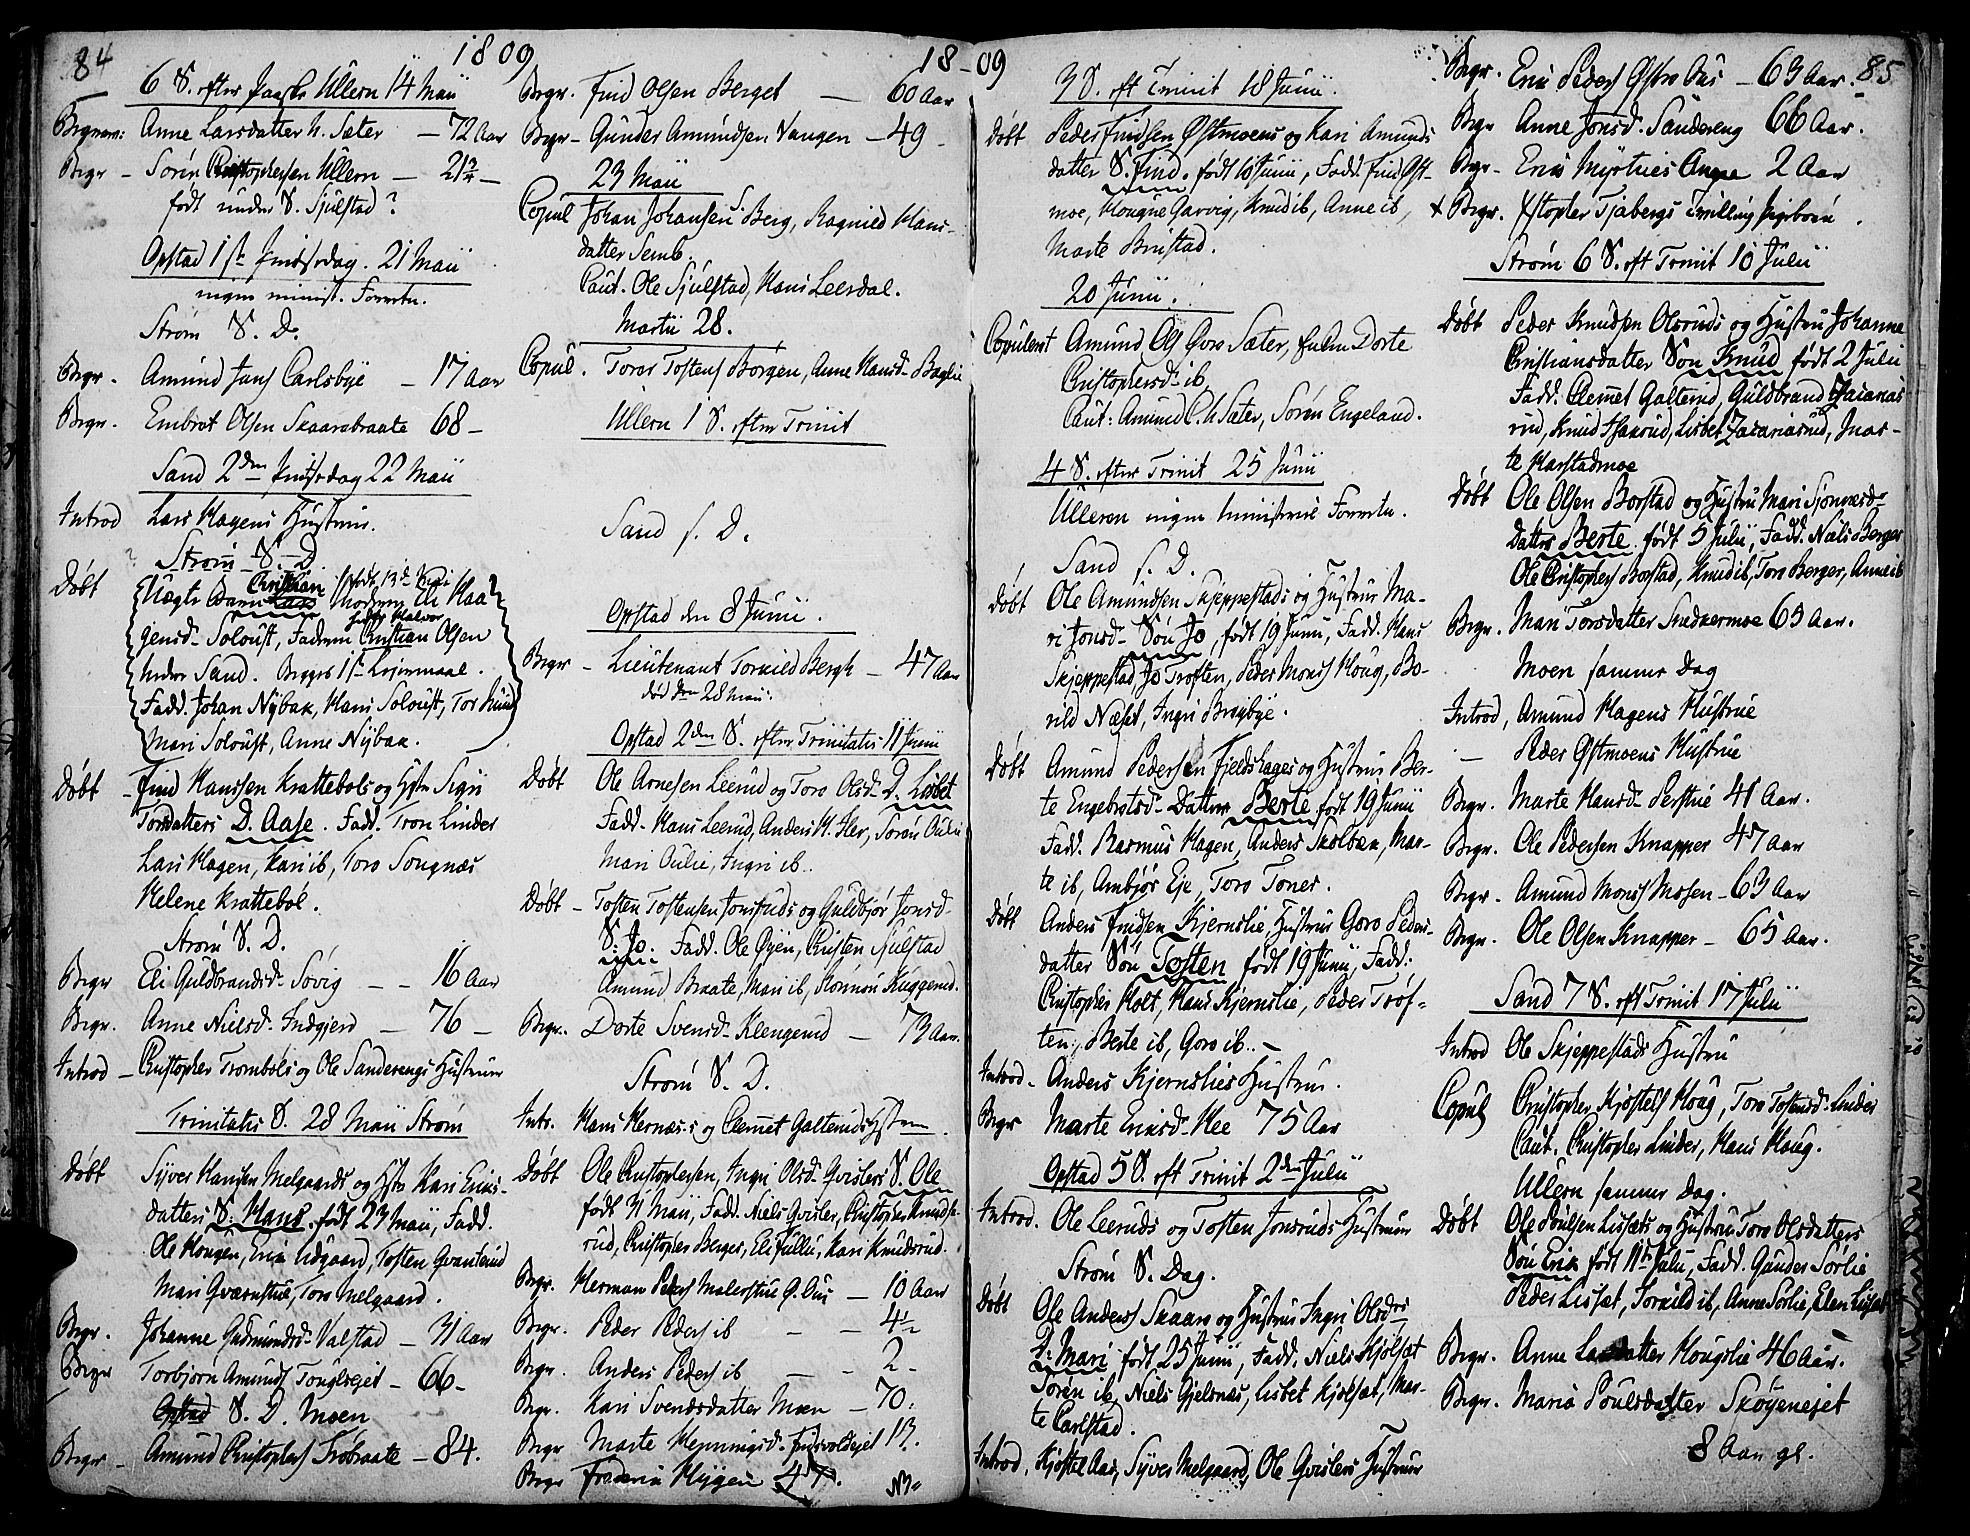 84
1809
6 S. efter Paaske Ullern 14 Maii
Begraven: Anne Larsdatter n. Sæter – 72 Aar
Begr – Sørén Christophersen Ullern – 21
født under S. Sjulstad?
Opstad 1ste Pintsedag. 21 Maii
ingen minist. Forretn.
Strøm S. D.
Begr. Amund Jans Carlsbye – 17 Aar
Begr. Embret Olsen Skaarabraate 68 –
Sand 2den Pintsedag 22 Maii
Introd Lars Hagens Hustrue.
Strøm S. D.
Døbt Uægte Barn Christian født 13de Moderen Eli Haa
gensd. Soloust, Faderen Christian Olsen
under Sand. Begges 1ste Leiermaal.
Fadd. Johan Nybak, Hans Soloust, Tor
Mari Soloust, Anne Nybak.
Døbt – Find Hanssen Krattebøls og Hstr Sigri
Torsdatters D. Aase. Fadd. Tron Linder
Lars Hagen, Kari ib, Toro Songnæs
Helene Krattebøl.
Strøm S. D.
Begr Eli Guldbrandsd. Søvig – – 16 Aar
Begr. Anne Nielsd. Indgjerd – 76 –
Introd – Christopher Trombøls og Ole Sanderengs Hustruer
Trinitatis S. 28 Maii Strøm
Døbt Syver Hansen Melgaards og Hstr Kari Erics-
datters S. Hans født 23 Maii, Fadd.
Ole Haugen, Eric Udgaard, Tosten Qvanterud
Mari Qværnstue, Toro Melgaard.
Begr. Johanne Gudmundsd. Valstad – 31 Aar
Begr Torbjørn Amunds Touglseiet – 66 –
Opstad S. D. Moen
Begr – Amund Christophers Frøbraate – 84.
Begr. Find Olsen Berget – 60 Aar
Begr – Gunder Amundsen Vangen – 49 –
23 Maii
Copul Johan Johansen Berg, Ragnild Hans-
datter Semb.
Caut. Ole Sjulstad, Hans Leerdal.
Martii 28.
Copul. Torer Tostens Børgen, Anne Hansd. Baglie
Ullern 1 S. efter Trinit
Sand s. D.
Opstad den 8 Junii.
Begr – Lieutenant Tornild Bergh – 47 Aar
død den 28 Maii.
Opstad 2den S. efter Trinitatis 11 Junii
Døbt Ole Arnesen Leerud og Toro Olsd. D. Lisbet
Fadd. Hans Leerud, Anders N. Her, Sørén Øulie
Mari Øulie, Ingri ib.
Døbt – Tosten Tostensen Jonsruds og Guldbjør Jonsd.
S. Jo. Fadd. Ole Øyen, Christen Sjulstad
Amund Braate, Mari ib, Rønnou Kuggerud.
Begr. Dorte Svensd. Klengerud – 73 Aar.
Strøm S. D.
Intr. Hans Hernæs's og Clemet Galteruds Hstruer.
Døbt Ole Christophersen, Ingri Olsd. Qvislers S. Ole
født 31 Maii, Fadd. Niels Qvisler, Christopher Knuds-
rud, Christopher Berger, Eli Fullu, Kari Knudsrud.
Begr. Herman Peders Malerstue Ø. Aus – 10 Aar
Begr. Peder Peders ib – – 4½
Begr. Anders Peders ib – – 2 –
Begr. Kari Svendsdatter Moen – 70.
Begr Marte Henningsd. Findsvoldeiet 13.
Begr Frederic Hyggen 47.
18–09
3 S. eft Trinit 18 Junii.
Døbt Peder Findsen Østmoens og Kari Amunds
datter S. Find. født 10 Junii, Fadd. Find Øst-
moe, Hougne Garvig, Knud ib, Anne ib,
Marte Brustad.
20 Junii.
Copuleret Amund Ols Øvre Sæter, Dorte
Christophersd. ib,
Caut: Amund C. n. Sæter, Sørén Engeland.
4 S. efter Trinit 25 Junii
Ulleren ingen ministeriel Forretn.
Sand s. D.
Døbt Ole Amundsen Skjeppestads og Hustrue Ma-
ri Jonsd. Søn Jo, født 19 Junii, Fadd. Hans
Skjeppestad, Jo Troften, Peder Mons Houg, Bo-
rild Næset, Ingri Bregbye.
Døbt Amund Pedersen Fjeldshages og Hustrue Ber-
te Engebretsd. Datter Berte født 19 Junii
Fadd. Rasmus Hagen, Anders Skolbæk, Mar-
te ib, Ambjør Eje, Toro Toner.
Døbt Anders Findsen Kjernslie, Hustrue Goro Peders-
datter Søn Tosten født 19 Junii, Fadd:
Christopher Holt, Hans Kjernslie, Peder Trøf-
ten, Berte ib, Goro ib. –
Introd. Anders Kjernslies Hustrue.
Begr Marte Ericsd. Hee 75 Aar
Opstad 5 S. eft Trinit 2den Julii
Introd. Ole Leeruds og Tosten Jonsruds Hustruer
Strøm S. Dag.
Døbt Ole Anders Skaare og Hustrue Ingri Olsd.
D. Mari født 25 Junii, Fadd. Niels Kjølsæt
Sørén ib, Niels Gjelsnæs, Lisbet Kjølsæt, Mar-
te Carlstad.
Introd. Kjøstel Aas, Syver Melgaard, Ole Qvislers Hustruer
Begr. Eric Peders Østre Aas – 63 Aar. 85
Begr Anne Jonsd. Sandereng 66 Aar.
Begr – Eric Myrtnes Ange 2 Aar
x Begr. Xstopher Tjabergs Tvilling Pigebørn.
Strøm 6 S. eft Trinit 10 Julii
Døbt Peder Knudsen Olsruds og Hustrue Johanne
Christiansdatter Søn Knud født 2 Julii
Fadd. Clemet Galterud, Guldbrand Zacarias
rud, Knud, Lisbet Zacariasrud, Mar-
te Harstadmoe
Døbt Ole Olsen Borstad og Hustrue Mari
Datter Berte født 5 Julii, Fadd. Niels Berger
Ole Christophers Borstad, Knud ib, Toro Berger, Anne ib
Begr. Mari Torsdatter Snekkermoe 63 Aar.
Moen samme Dag
Introd, Amund Hagens Hustrue
– Peder Østmoens Hustrue
Begr. Marte Hansd. Perstue 41 Aar.
Begr. Ole Pedersen Knapper 47 Aar
Begr. Amund Mons Mosen – 63 Aar
Begr. Ole Olsen Knapper – 65 Aar.
Sand 7 S. eft Trinit 17 Julii
Introd Ole Skjeppestads Hustru
Copul Christopher Kjøstels Houg, Toro Tostensd. Linder
Caut. Christopher Linder, Hans Houg.
Ullern samme Dag.
Døbt Ole Poulsen Lissæts og Hustrue Toro Olsdatters
Søn Eric født 11te Julii, Fadd. Gunder Sørlie
Peder Lissæt, Tornild ib, Anne Sørlie, Elen Lissæt
Begr. Anne Larsdatter Hougslie 46 Aar.
Begr. Maria Poulsdatter Skøyeneiet
8 Aar gl.